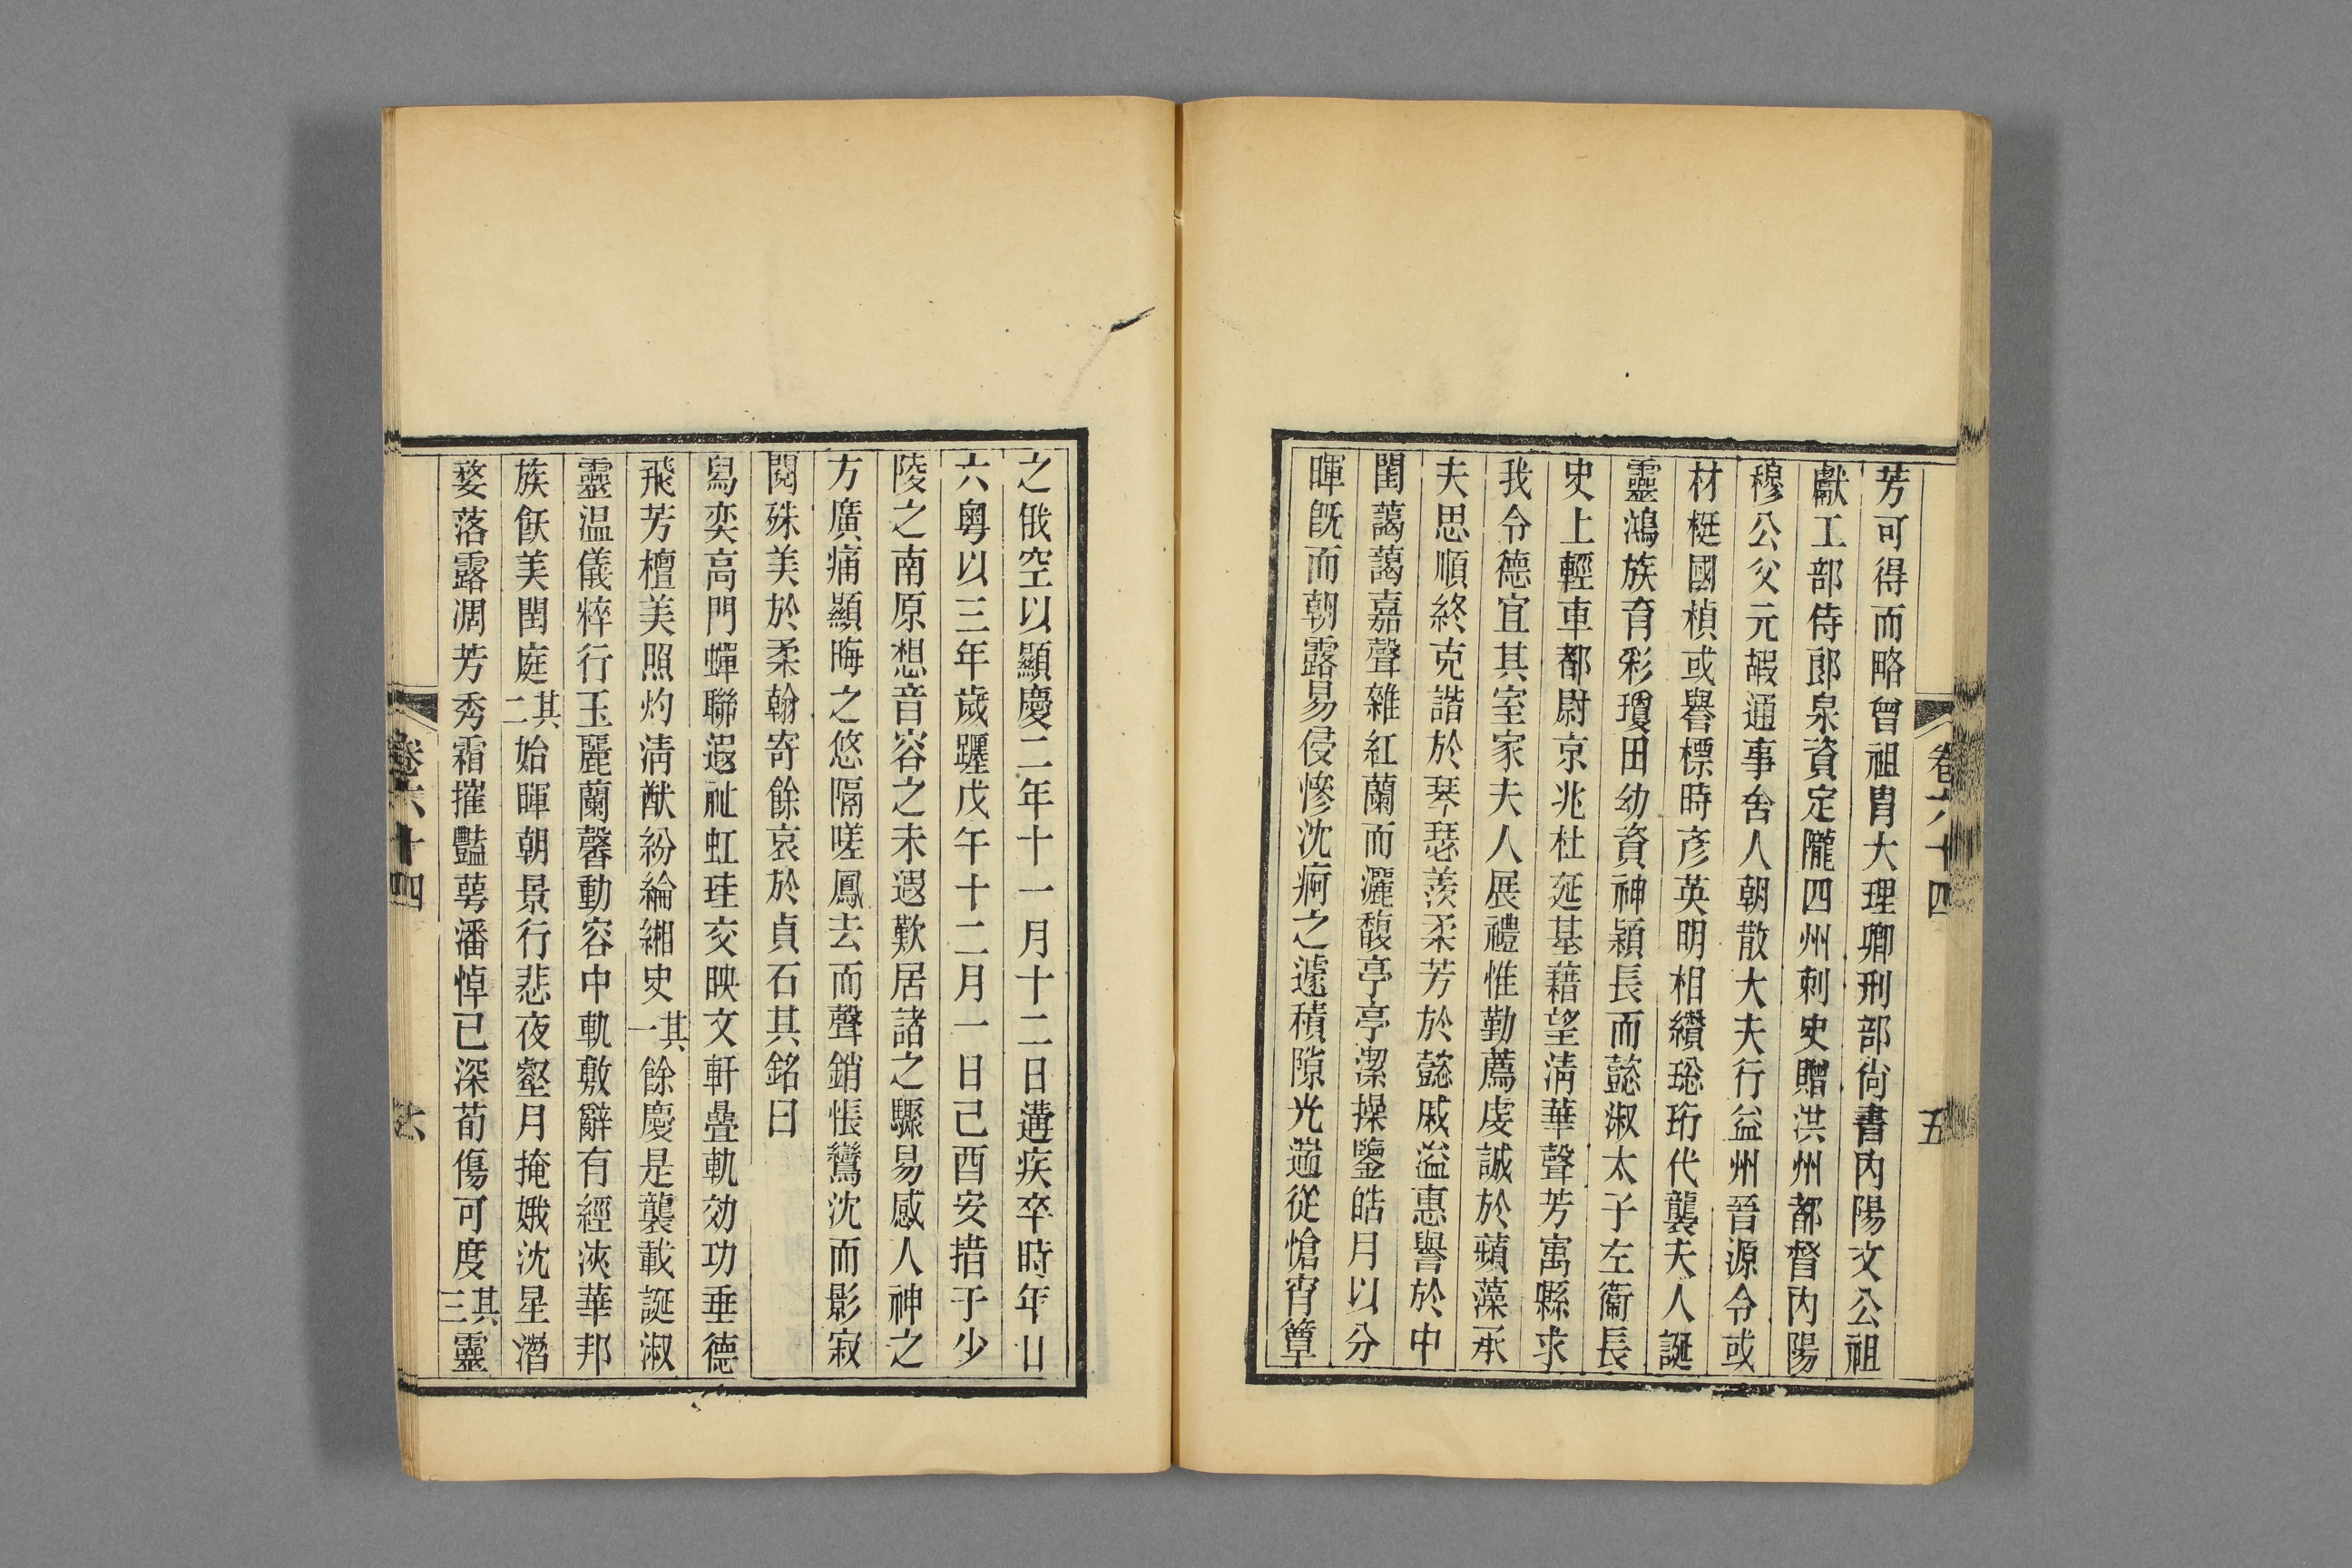 芳可得而略曾祖胄大理卿刑部尙書內陽文公祖
獻工部侍郞泉資定隴四州刺史贈洪州都督內陽
穆公父元嘏通事舍人朝散大夫行益州晉源令或
材梃國楨或譽標時彥英明相纘珌珩代襲夫人誕
靈鴻族育彩瓊田幼資神穎長而懿淑太子左衞長
史上輕車都尉京兆杜延基藉望淸華聲芳寓縣求
我令德宜其室家夫人展禮惟勤薦虔誠於蘋藻承
夫思順終克諧於琴瑟羨柔芳於懿戚溢惠譽於中
閨藹藹嘉聲雜紅蘭而灑馥亭亭潔操鑒皓月以分
暉旣而朝露易侵慘沈痾之遽積隙光遄從愴宵簟
之俄空以顯慶二年十一月十二日遘疾卒時年廿
六粵以三年歲躔戊午十二月一日己酉安措于少
陵之南原想音容之未遐歎居諸之驟易感人神之
方廣痛顯晦之悠隔嗟鳳去而聲銷悵鸞沈而影寂
閱殊美於柔翰寄餘哀於貞石其銘曰
舃奕高門蟬聯遐祉虹珪交映文軒疊軌効功垂德
飛芳檀美照灼淸猷紛綸緗史其一餘慶是襲載誕淑
靈温儀粹行玉麗蘭馨動容中軌敷辭有經浹華邦
族飫美閨庭其二始暉朝景行悲夜壑月掩娥沈星潛
婺落露凋芳秀霜摧豔萼潘悼已深荀傷可度其三靈
卷六十四
五
卷六十四
六